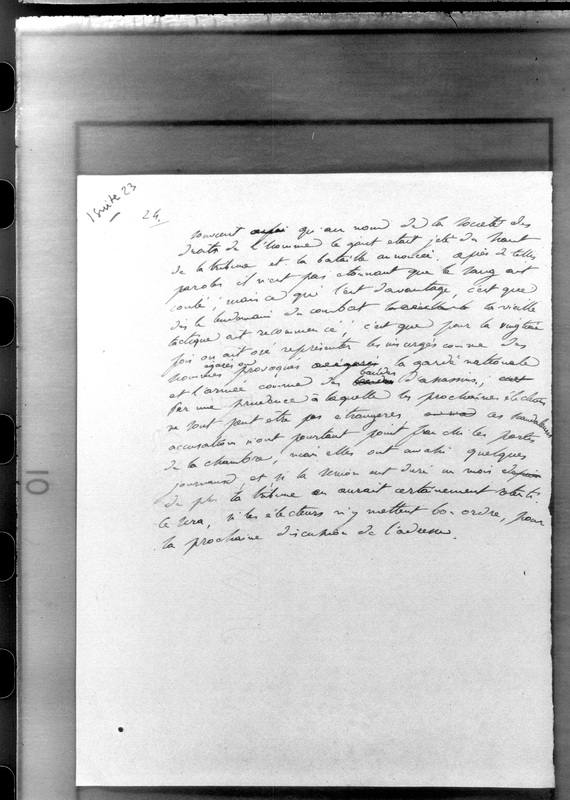 1 suite 23
24
souvient aussi qu'au nom de la société des
droits de l'homme le gant était jeté du haut
de la tribune et la bataille annoncée. après de telles
paroles il n'est pas étonnant que le sang ait
coulé; mais ce qui l'est davantage, c'est que
dès le lendemain du combat la vieille
tactique ait recommencé; c'est que pour la vingtième
fois on ait osé représenter les insurgés comme des
hommes égarés ou provoqués la garde nationale
et l'armée comme des bandes d'assassins,
Par une prudence à laquelle les prochaines élections
ne sont peut être pas étrangères ces scandaleuses
accusations n'ont pourtant point franchi les portes
de la chambre, mais elles ont envahi quelques
journaux, et si la session eut duré un mois
de plus la tribune en aurait certainement retenti.
Ce sera, si les électeurs n'y mettent bon ordre, pour
la prochaine discussion de l'adresse.
10